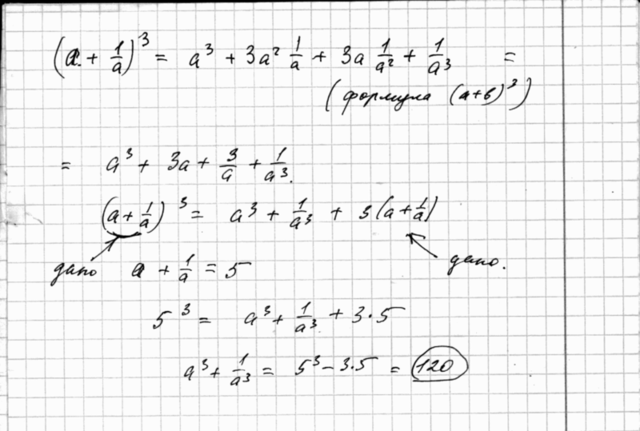 (a + 1/a)³ = a³ + 3a² 1/a + 3a 1/a² + 1/a³ =
(формула (a+b)³)
= a³ + 3a + 3/a + 1/a³.
(a + 1/a)³ = a³ + 1/a³ + 3(a + 1/a)
дано a + 1/a = 5 дано.
5³ = a³ + 1/a³ + 3·5
a³ + 1/a³ = 5³ - 3·5 = 120